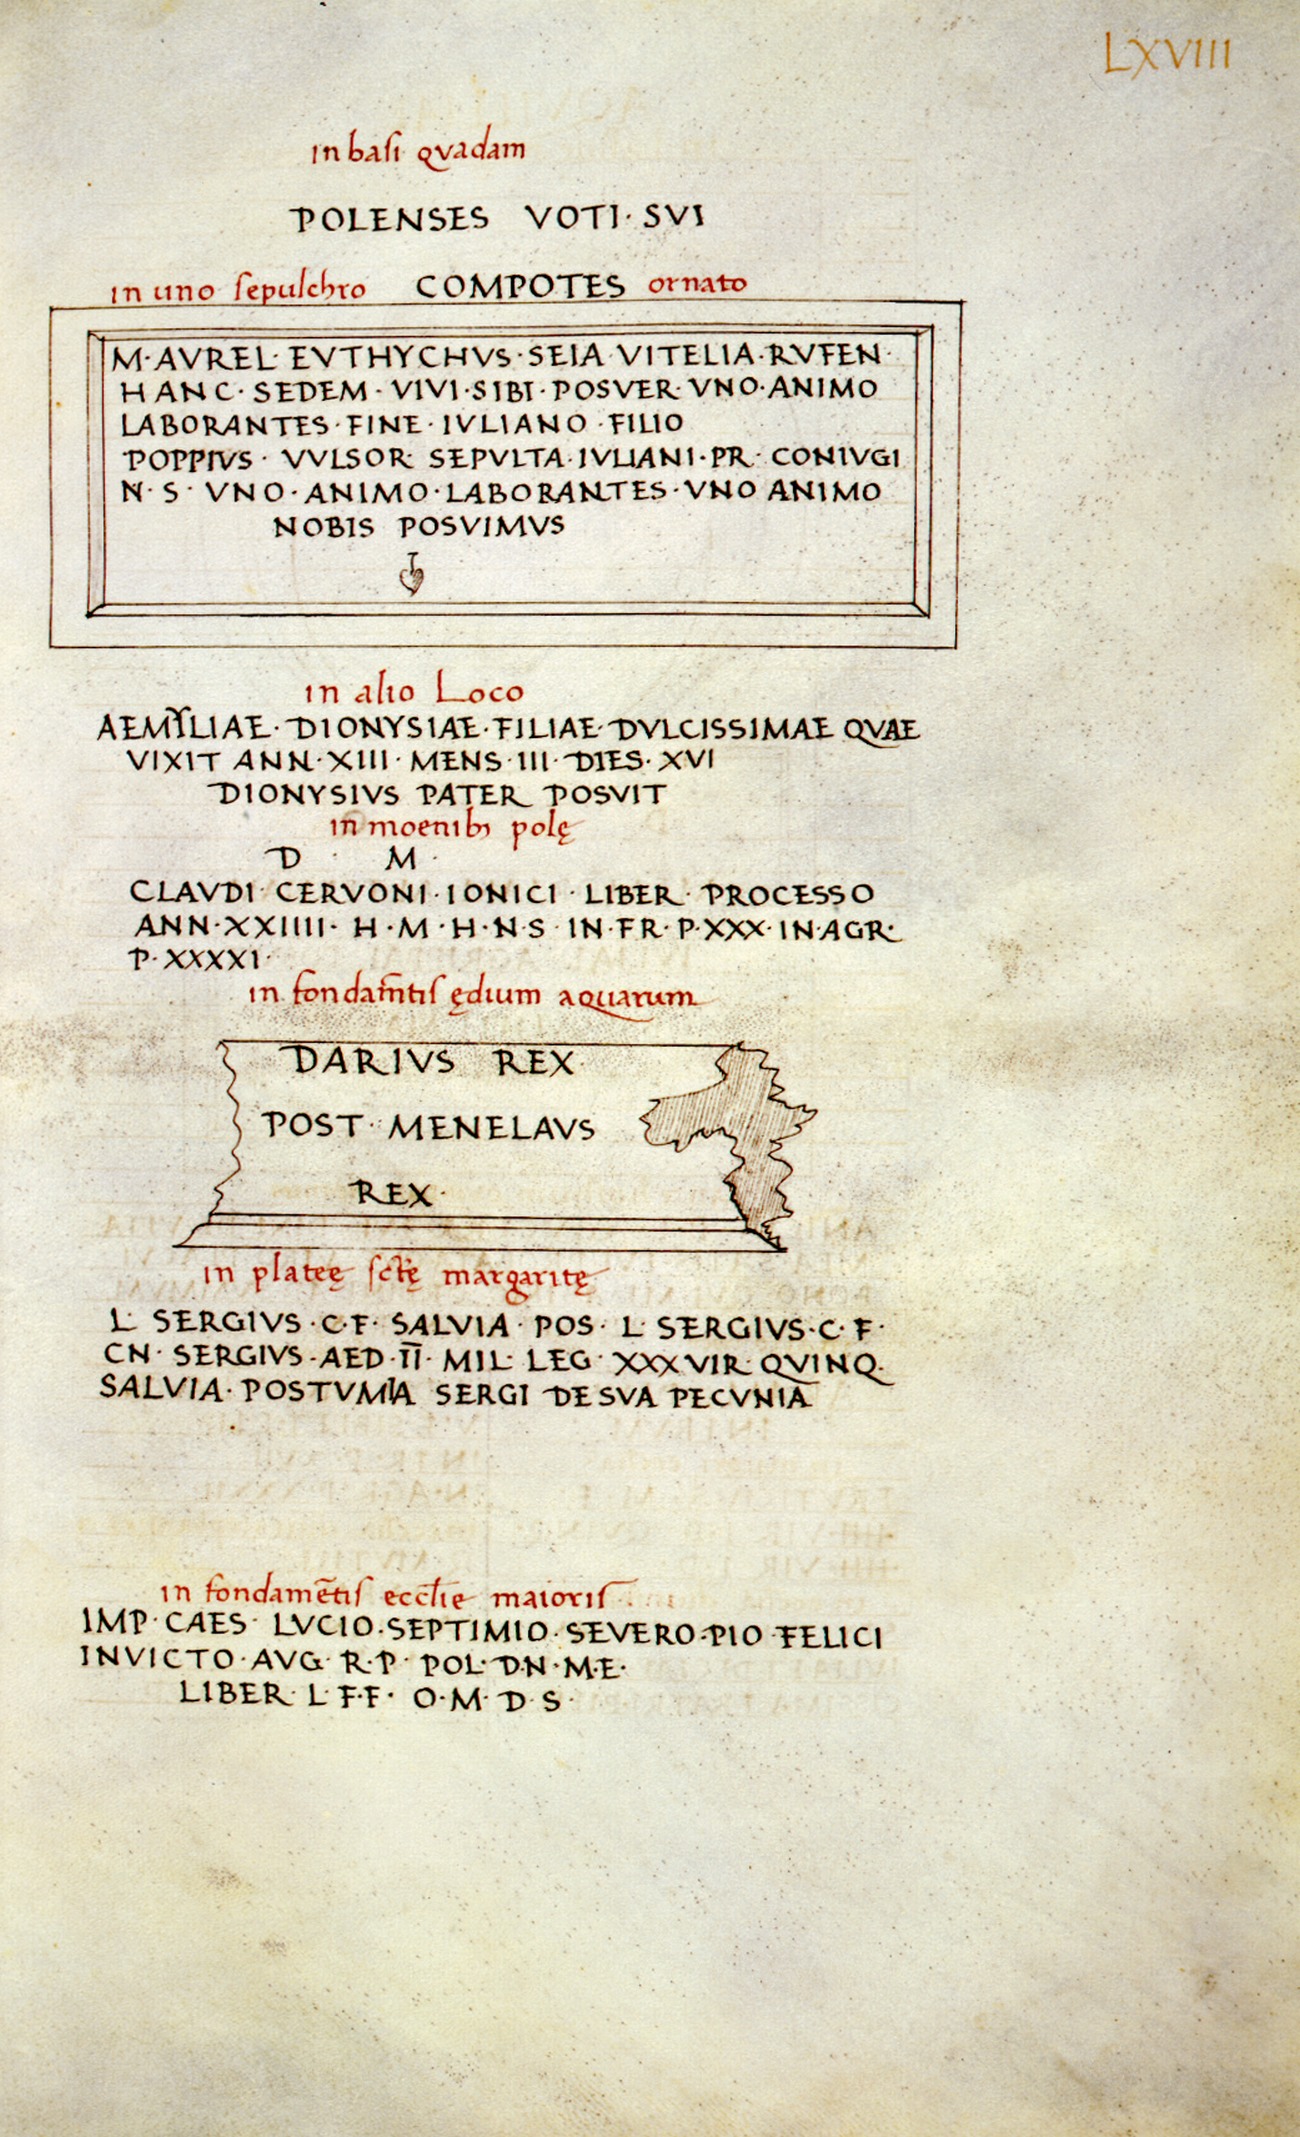 LXVIII
in basi quadam
POLENSES VOTI· SVI
in uno sepulchro COMPOTES ornato
M·AVREL· EVTHYCHVS·SEIA·VITELIA·RVFEN·
HANC·SEDEM·VIVI·SIBI·POSVER·VNO·ANIMO
LABORANTES·FINE·IVLIANO·FILIO
POPPIVS· VVLSOR· SEPVLTA·IVLIANI·PR· CONIVGI
N·S· VNO·ANIMO·LABORANTES·VNO ANIMO
NOBIS POSVIMVS
in alio Loco
AEMYLIAE·DIONYSIAE·FILIAE·DVLCISSIMAE QVAE
VIXIT ANN·XIII·MENS·III·DIES·XVI
DIONYSIVS PATER POSVIT
in moenibꝫ polę
D · M ·
CLAVDI· CERVONI·IONICI·LIBER· PROCESSO
ANN·XXIIII· H·M·H·N·S· IN·FR·P·XXX·IN·AGR·
P·XXXXI·
in fondam̄tis ędium aquarum
DARIVS REX·
POST·MENELAVS
REX·
in plateę sctę̄ margaritę
L· SERGIVS·C·F· SALVIA· POS· L· SERGIVS·C·F·
CN· SERGIVS·AED·I̅I̅· MIL· LEG· XXXVIR· QVINQ·
SALVIA·POSTVMIA SERGI DE SVA PECVNIA
in fondamētis eccl̄ie maioris
IMP·CAES· LVCIO·SEPTIMIO·SEVERO·PIO·FELICI
INVICTO·AVG·R·P· POL·D·N·M·E·
LIBER·L·F·F· O·M·D·S·